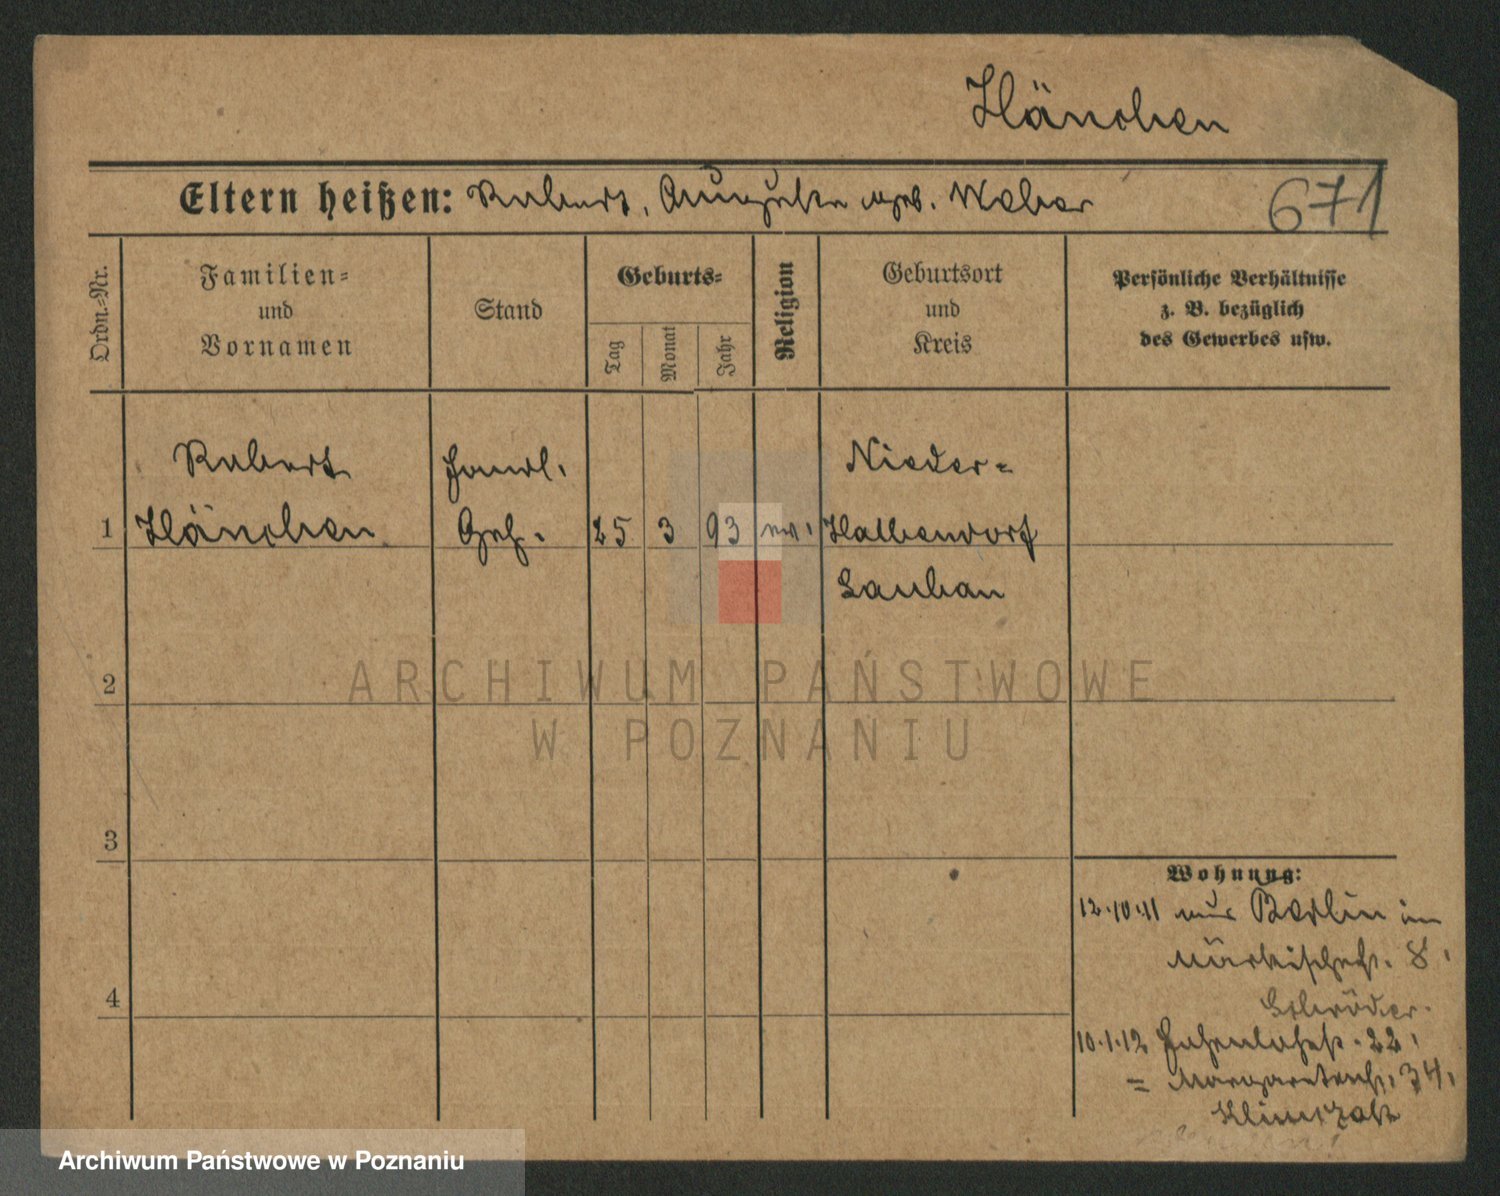 Hänchen
Eltern heißen: Robert, Auguste geb. Weber
671
Ordn.-Nr.
Familien-
und
Vornamen
Stand
Geburts-
Tag
Monat
Jahr
Religion
Geburtsort
und
Kreis
Persönliche Verhältnisse
z. B. bezüglich
des Gewerbes usw.
Robert
Handl.
Nieder-
1 Hänchen Geh. 25 3 93 ev. Halbendorf
Lauban
2
3
4
Wohnung:
12.10.11 aus Berlin in
Märkischestr. 8.
Schröder.
10.1.12 Hohenlohestr. 22.
= Margaretenstr. 34.
ARCHIWUM PAŃSTWOWE
W POZNANIU
Archiwum Państwowe w Poznaniu